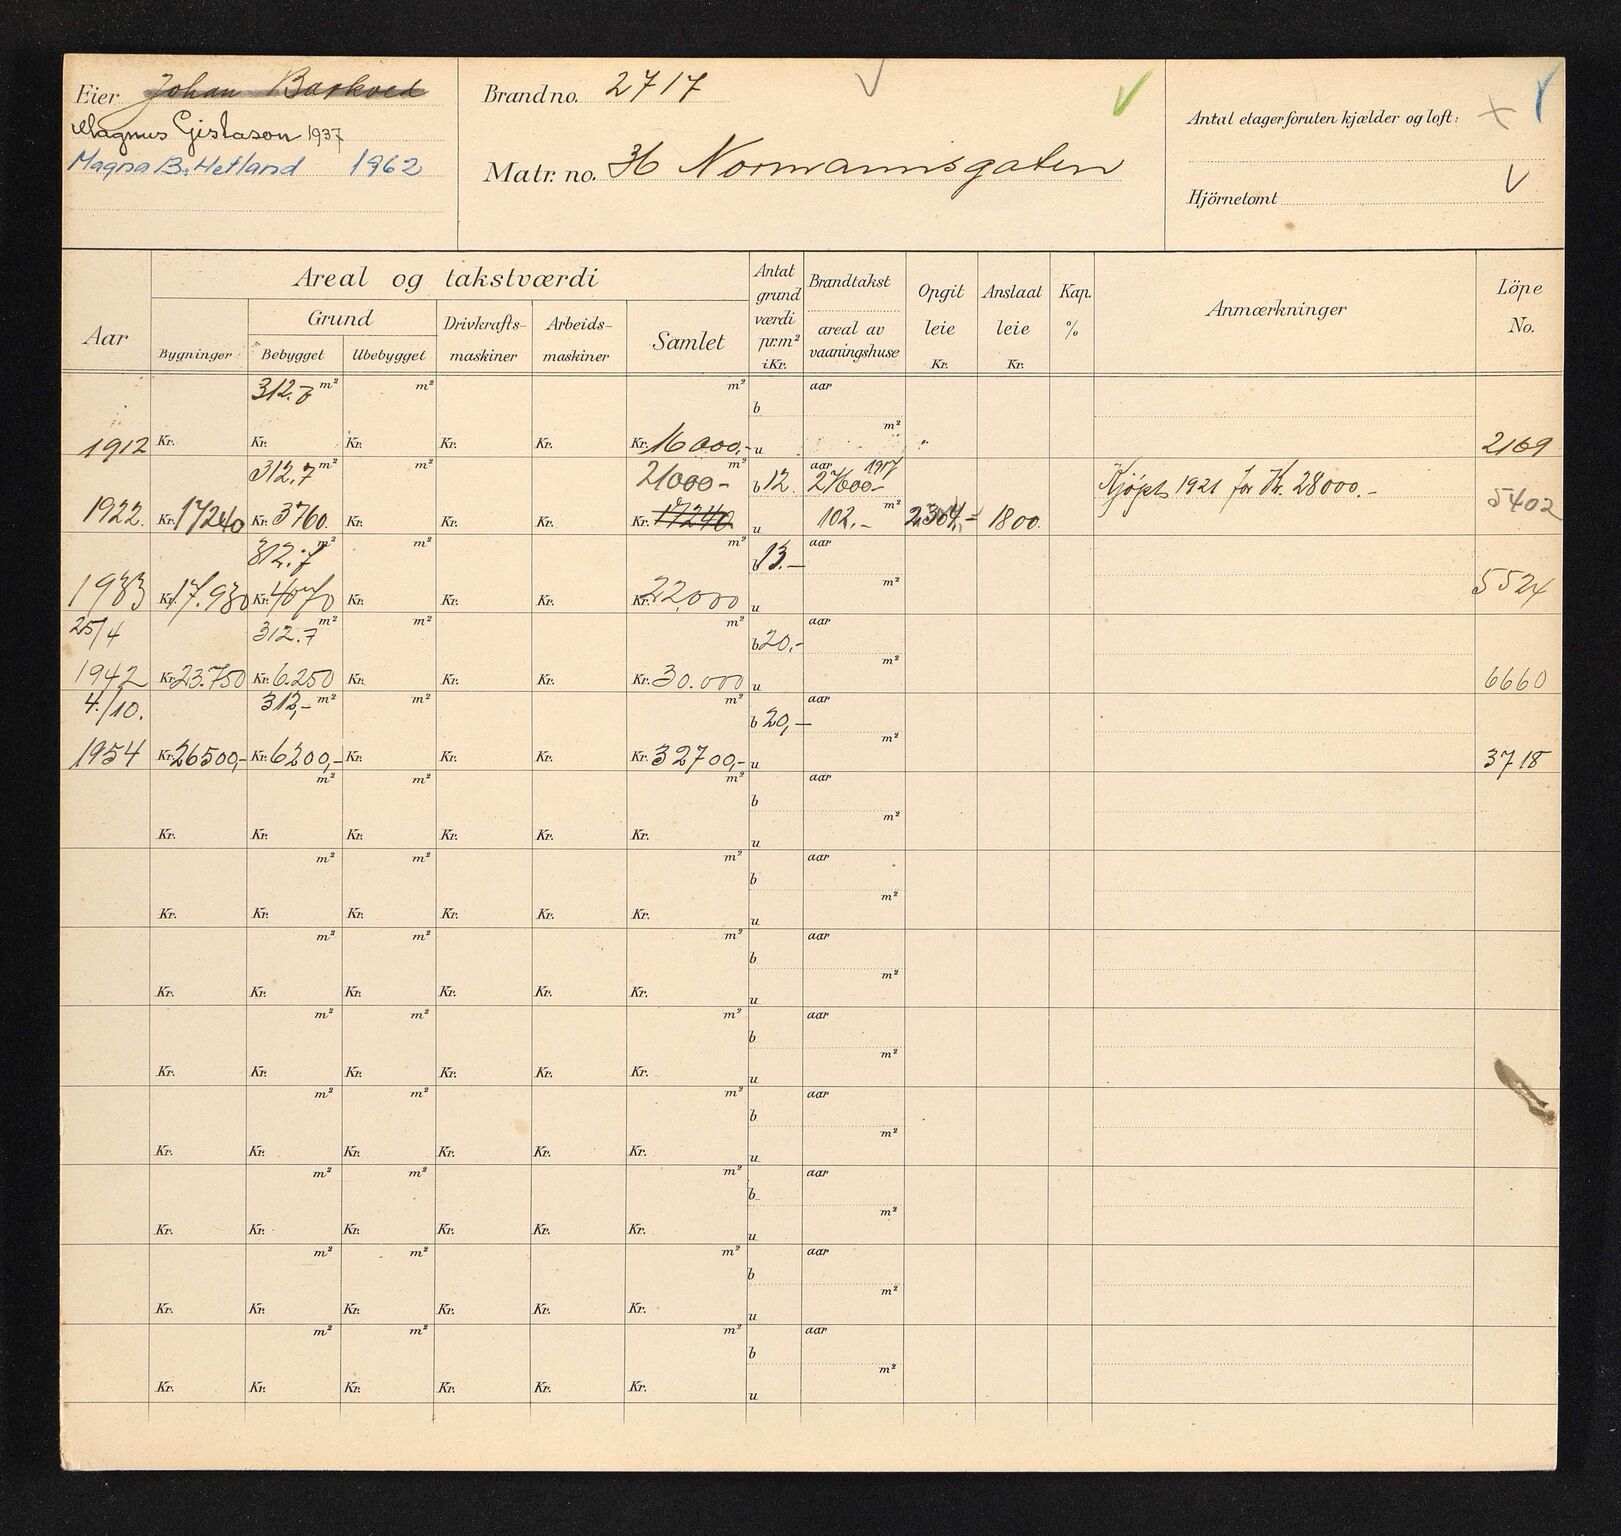 Eier Johan Barkved
Magnus Gislason 1937
Magna B. Hetland 1962
Brand no. 2717
Matr. no. 36 Normannsgaten
Antal etager foruten kjælder og loft: x
Hjörnetomt
Areal og takstværdi
Aar
Bygninger
Grund
Bebygget
Ubebygget
Drivkrafts-maskiner
Arbeids-maskiner
Samlet
Antat grund værdi pr.m² i Kr.
Brandtakst
areal av vaaningshuse
Opgit leie Kr.
Anslaat leie Kr.
Kap. %
Anmærkninger
Löpe No.
312.7 m² m² m² aar
b m²
1912 Kr. Kr. Kr. Kr. Kr. Kr. 16000,- u 2169
312.7 m² m² 21000- m² b 12. aar 1917 27600-
Kjøpt 1921 for Kr. 28000.-
1922. Kr. 17240 Kr. 3760. Kr. Kr. Kr. Kr. 17240 u 102.- m² 2304,- 1800. 5402
312.7 m² m² m² b 13.- aar
1933 Kr. 17.930 Kr. 4070 Kr. Kr. Kr. Kr. 22.000 u m² 5524
25/4 312.7 m² m² m² b 20,- aar
1942 Kr. 23.750 Kr. 6.250 Kr. Kr. Kr. Kr. 30.000 u m² 6660
4./10. 312,- m² m² m² b 20,- aar
1954 Kr. 26500,- Kr. 6200,- Kr. Kr. Kr. Kr. 32700,- u m² 3718
m² m² m² b aar m²
Kr. Kr. Kr. Kr. Kr. Kr. u
m² m² m² b aar m²
Kr. Kr. Kr. Kr. Kr. Kr. u
m² m² m² b aar m²
Kr. Kr. Kr. Kr. Kr. Kr. u
m² m² m² b aar m²
Kr. Kr. Kr. Kr. Kr. Kr. u
m² m² m² b aar m²
Kr. Kr. Kr. Kr. Kr. Kr. u
m² m² m² b aar m²
Kr. Kr. Kr. Kr. Kr. Kr. u
m² m² m² b aar m²
Kr. Kr. Kr. Kr. Kr. Kr. u
m² m² m² b aar m²
Kr. Kr. Kr. Kr. Kr. Kr. u